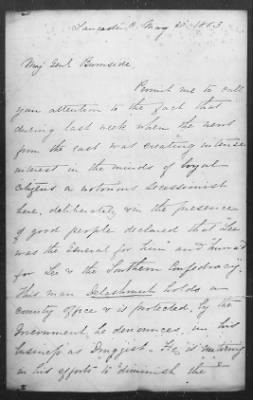 Lancaster O. May 20. 1863
Maj Genl Burnside.
Permit me to call
your attention to the fact that
during last week when the news
from the east was creating intense
interest in the minds of loyal
citizens a notorious secessionist
here, deliberately in the presence
of good people declared that "Lee
was the General for him" and "hurra'd
for Lee & the Southern Confederacy.
This man holds a
county office & is protected, by the
Government he denounces, in his
business as Druggist. He is untiring
in his efforts to diminish the